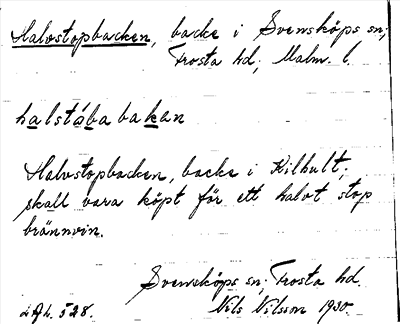 Halvstopbacken, backe i Svensköps sn;
Frosta hd; Malm. l.
halstábabakan
Halvstopbacken, backe i Kilhult;
skall vara köpt för ett halvt stop
brännvin.
Svensköps sn; Frosta hd.
Nils Nilsson 1930.
528.